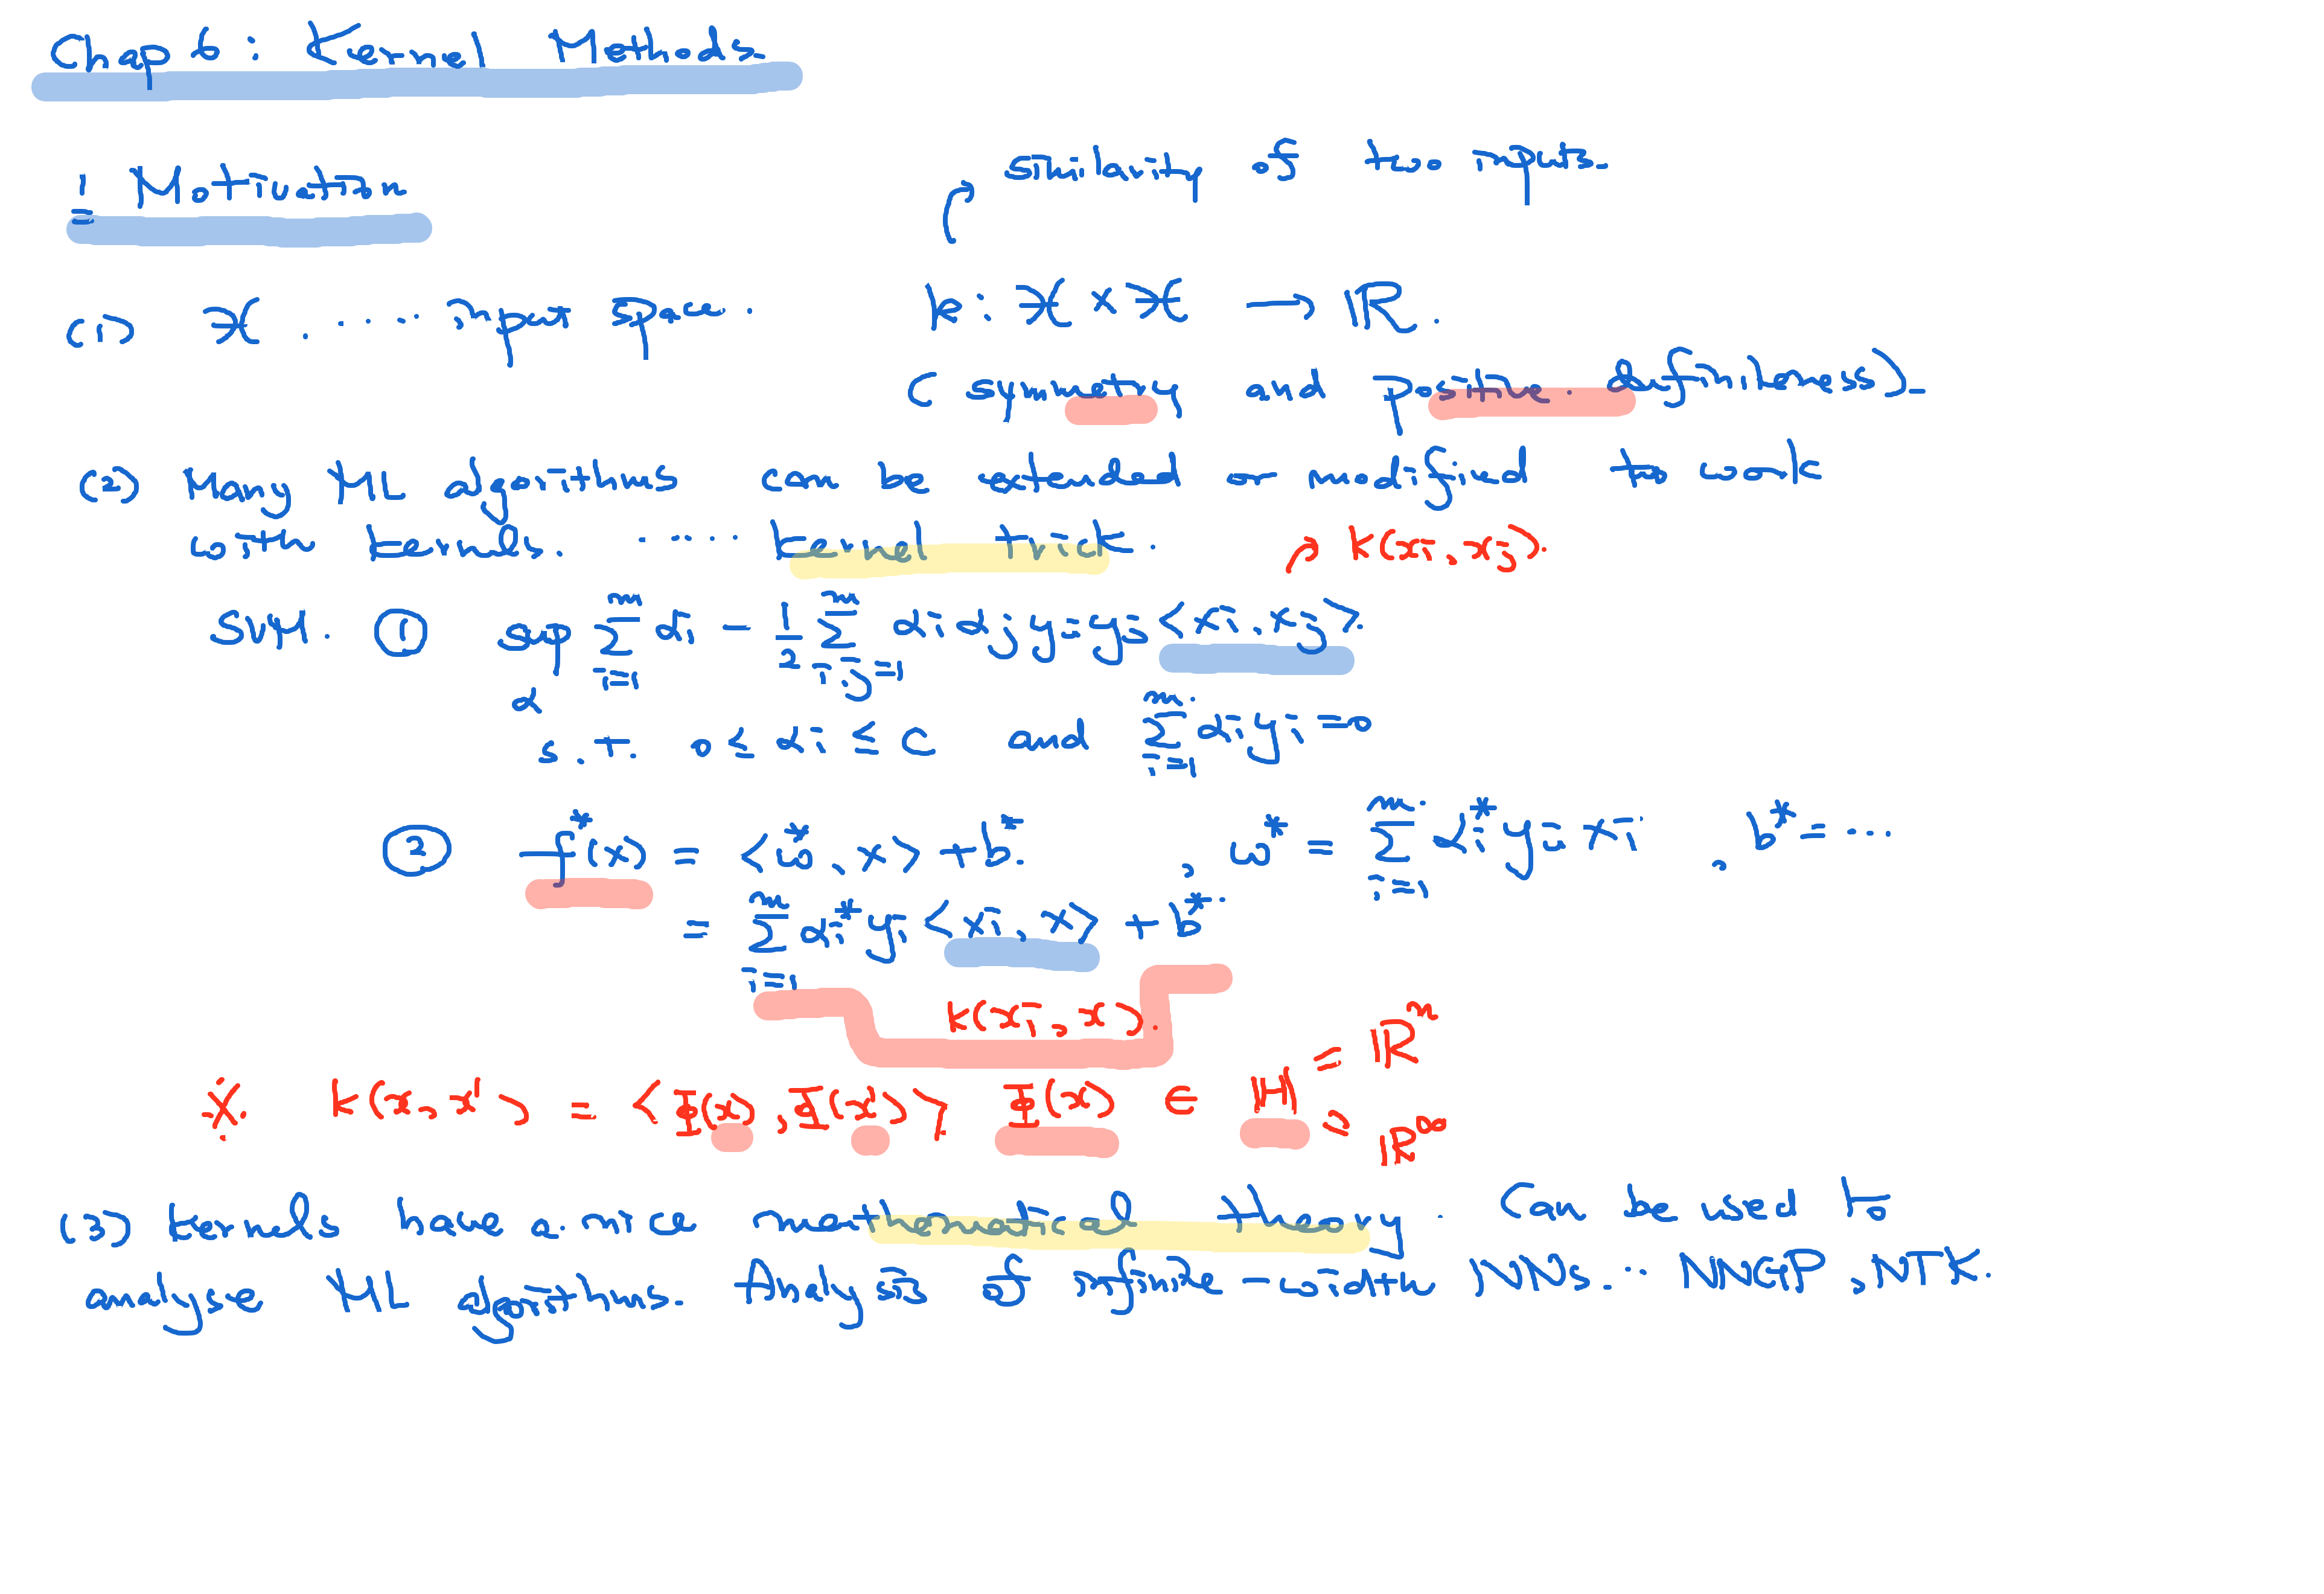 Chap 6: Kernel Methods.
1 Motivation
similarity of two inputs.
(1) X ..... input space. k: X × X → ℝ.
(symmetry and positive definiteness).
(2) Many ML algorithms can be extended or modified to work
with kernels. ..... kernel trick.
k(xi, xj).
SVM. ① sup_α Σ_{i=1}^m αi - 1/2 Σ_{i,j=1}^m αi αj yi yj <xi, xj>.
s.t. 0 ≤ αi ≤ C and Σ_{i=1}^m αi yi = 0
② f*(x) = <w*, x> + b*, w* = Σ_{i=1}^m αi* yi xi, b* = ...
= Σ_{i=1}^m αi* yi <xi, x> + b*.
k(xi, x).
※ k(x, x') = <Φ(x), Φ(x')>, Φ(x) ∈ H = ℝⁿ
= ℝ^∞
(3) kernels have a nice mathematical theory. Can be used to
analyse ML algorithms. Analysis of infinite-width NNs... NNGP, NTK.